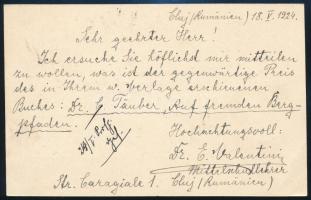 Cluj (Rumänien) 18. V. 1924.
Sehr geehrter Herr!
Ich ersuche Sie höflichst mir mitteilen
zu wollen, was ist der gegenwärtige Preis
des in Ihrem w. Verlage erschienenen
Buches: Dr. C. Täuber, Auf fremden Berg-
pfaden.
Hochachtungsvoll:
Dr. E. Valentini
Mittelschullehrer
Str. Caragiale 1. Cluj (Rumänien)